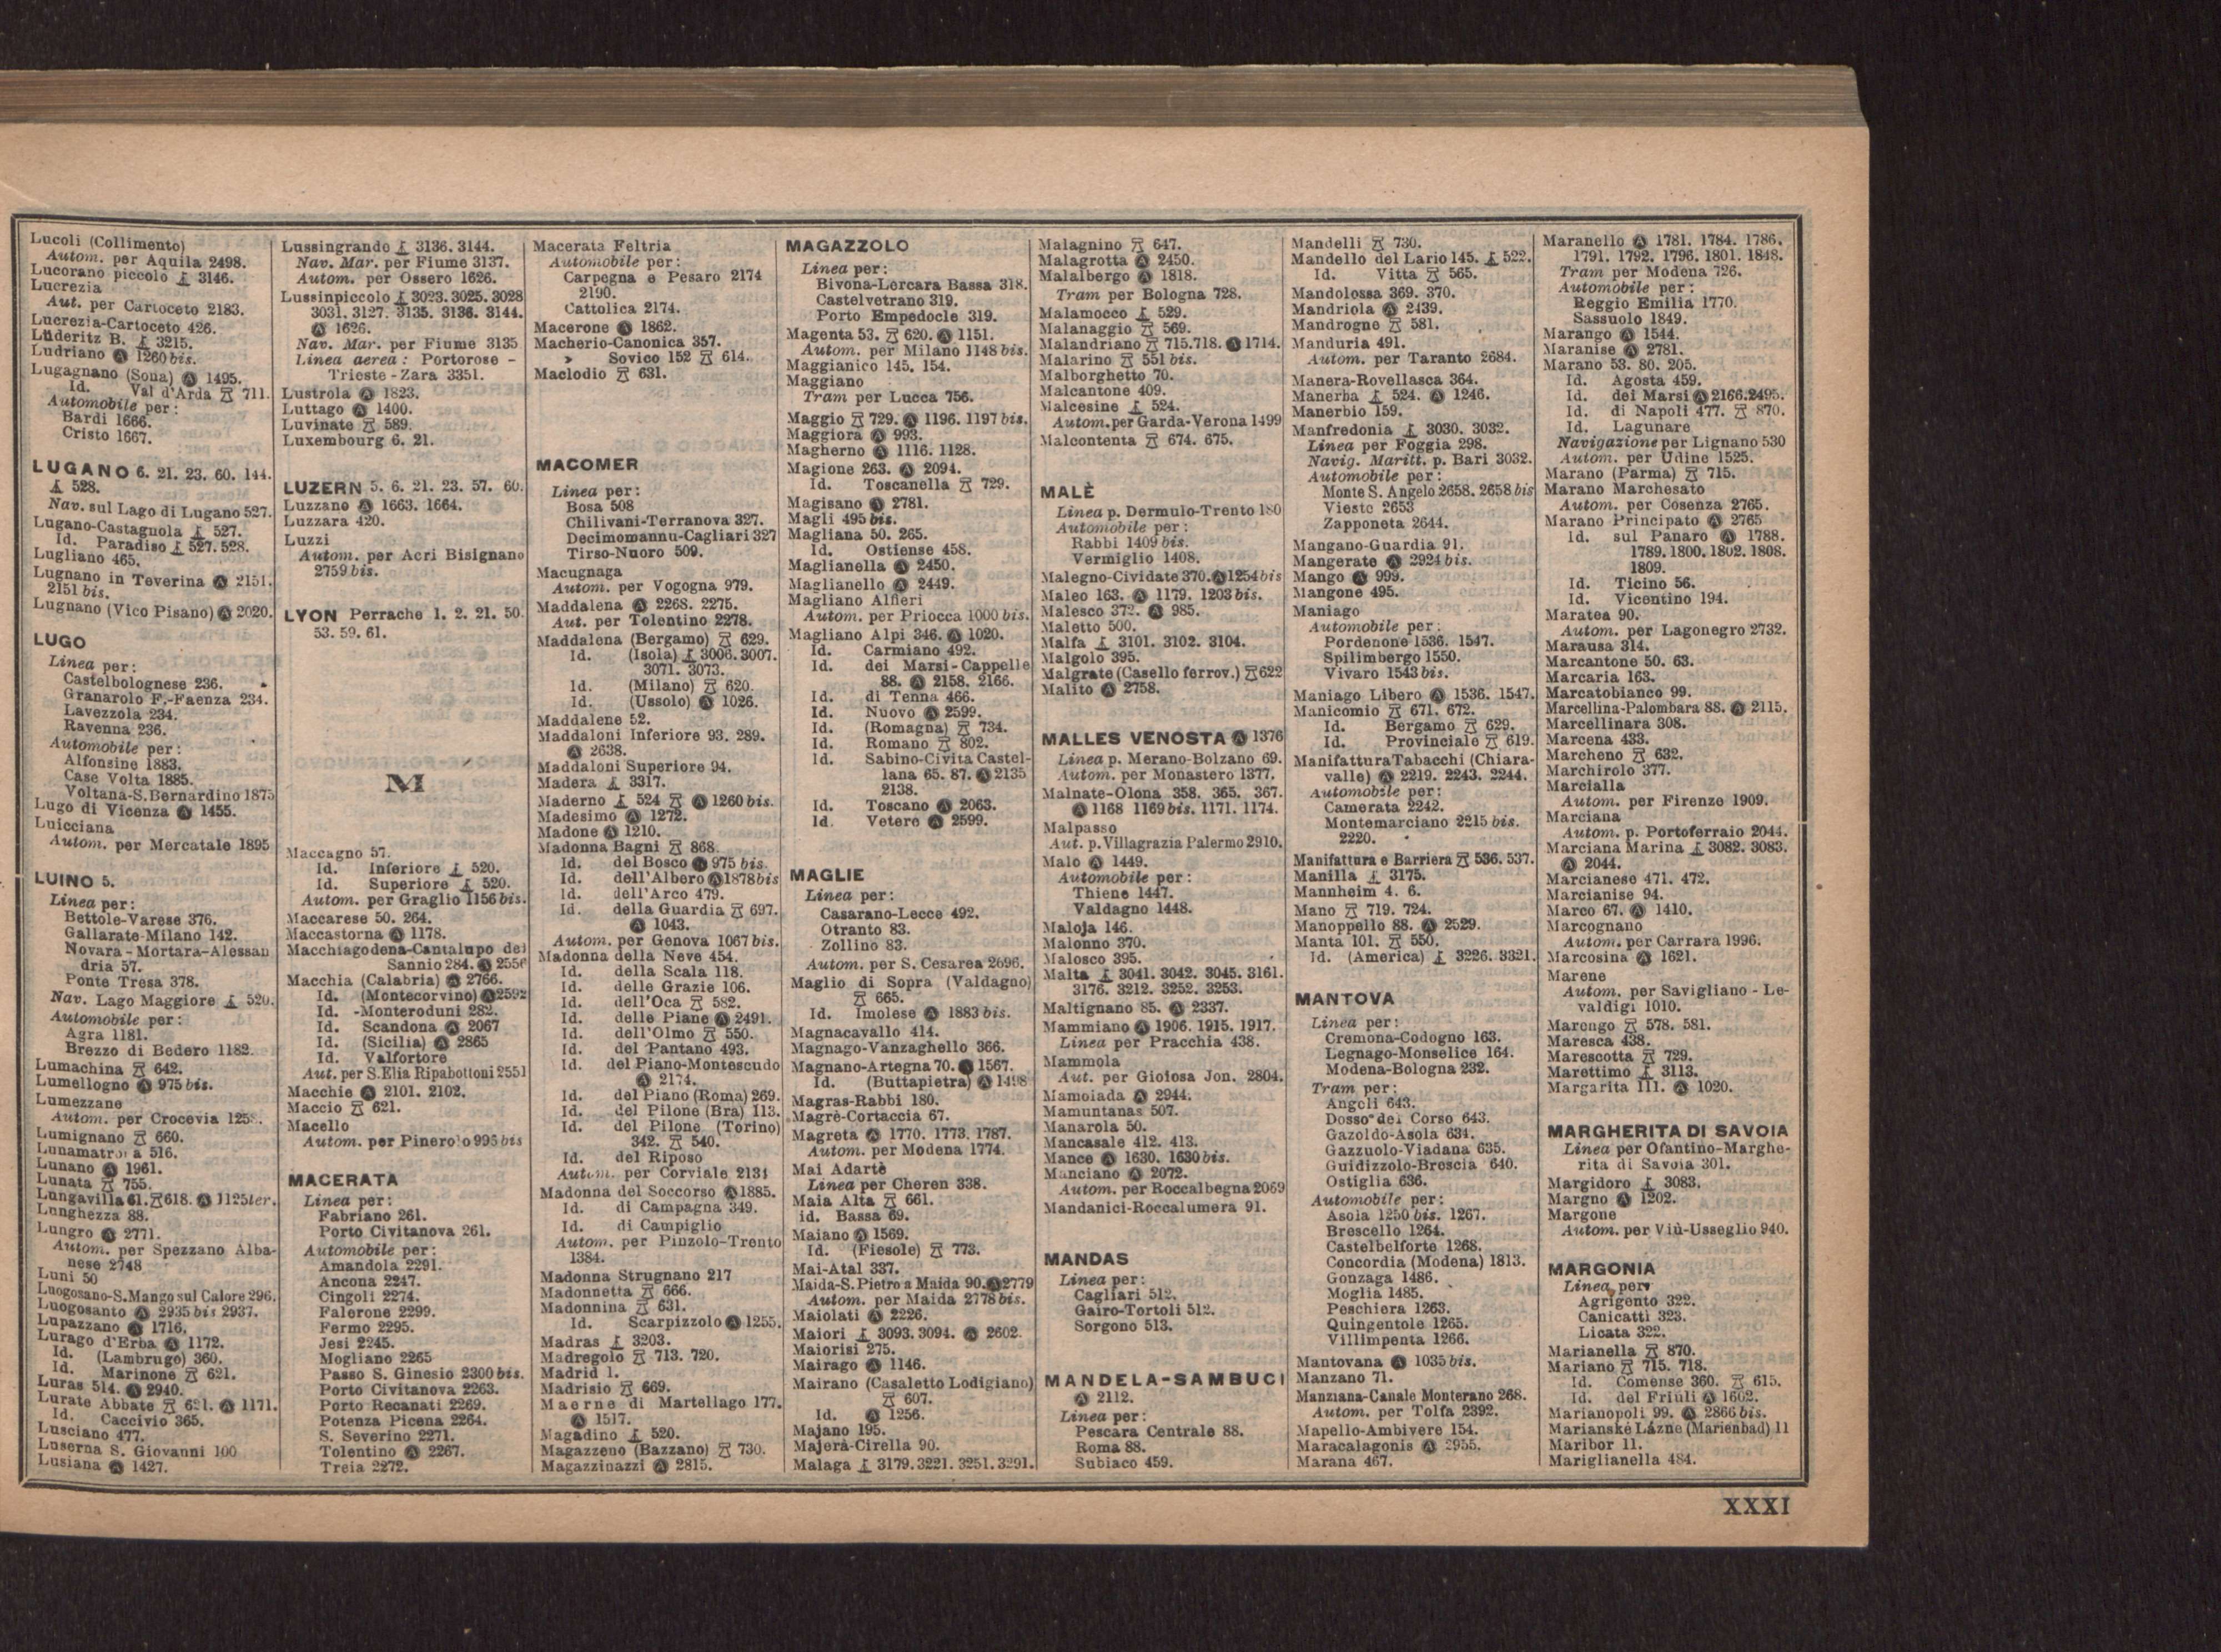 Lucoli (Collimento)
Autom. per Aquila 2498.
Lucorano piccolo 3146.
Lucrezia
Aut. per Cartoceto 2183.
Lucrezia-Cartoceto 426.
Lüderitz B. 3215.
Ludriano Ⓐ 1260 bis.
Lugagnano (Sona) Ⓐ 1495.
Id. Val d'Arda 711.
Automobile per:
Bardi 1666.
Cristo 1667.
LUGANO 6. 21. 23. 60. 144.
528.
Nav. sul Lago di Lugano 527.
Lugano-Castagnola 527.
Id. Paradiso 527. 528.
Lugliano 465.
Lugnano in Teverina Ⓐ 2151.
2151 bis.
Lugnano (Vico Pisano) Ⓐ 2020.
LUGO
Linea per:
Castelbolognese 236.
Granarolo F.-Faenza 234.
Lavezzola 234.
Ravenna 236.
Automobile per:
Alfonsine 1883.
Case Volta 1885.
Voltana-S.Bernardino 1875
Lugo di Vicenza Ⓐ 1455.
Luicciana
Autom. per Mercatale 1895
LUINO 5.
Linea per:
Bettole-Varese 376.
Gallarate-Milano 142.
Novara-Mortara-Alessan
dria 57.
Ponte Tresa 378.
Nav. Lago Maggiore 520.
Automobile per:
Agra 1181.
Brezzo di Bedero 1182.
Lumachina 642.
Lumellogno Ⓐ 975 bis.
Lumezzane
Autom. per Crocevia
Lumignano 660.
Lunamatrona 516.
Lunano Ⓐ 1961.
Lunata 755.
Lungavilla 61. 618. Ⓐ 1125 ter.
Lunghezza 88.
Lungro Ⓐ 2771.
Autom. per Spezzano Alba-
nese 2748
Luni 50
Luogosano-S.Mango sul Calore 296.
Luogosanto Ⓐ 2935 bis 2937.
Lupazzano Ⓐ 1716.
Lurago d'Erba Ⓐ 1172.
Id. (Lambrugo) 360.
Id. Marinone 621.
Luras 514. Ⓐ 2940.
Lurate Abbate 621. Ⓐ 1171.
Id. Caccivio 365.
Lusciano 477.
Luserna S. Giovanni 100
Lusiana Ⓐ 1427.
Lussingrando 3136. 3144.
Nav. Mar. per Fiume 3137.
Autom. per Ossero 1626.
Lussinpiccolo 3023. 3025. 3028
3031. 3127. 3135. 3136. 3144.
Ⓐ 1626.
Nav. Mar. per Fiume 3135
Linea aerea: Portorose -
Trieste-Zara 3351.
Lustrola Ⓐ 1823.
Luttago Ⓐ 1400.
Luvinate 589.
Luxembourg 6. 21.
LUZERN 5. 6. 21. 23. 57. 60.
Luzzano Ⓐ 1663. 1664.
Luzzara 420.
Luzzi
Autom. per Acri Bisignano
2759 bis.
LYON Perrache 1. 2. 21. 50.
53. 59. 61.
M
Maccagno 57.
Id. Inferiore 520.
Id. Superiore 520.
Autom. per Graglio 1156 bis.
Maccarese 50. 264.
Maccastorna Ⓐ 1178.
Macchiagodena-Cantalupo del
Sannio 284. Ⓐ 2556
Macchia (Calabria) Ⓐ 2766.
Id. (Montecorvino) Ⓐ 2592
Id. -Monteroduni 282.
Id. Scandona Ⓐ 2067
Id. (Sicilia) Ⓐ 2865
Id. Valfortore
Aut. per S.Elia Ripabottoni 2551
Macchie Ⓐ 2101. 2102.
Maccio 621.
Macello
Autom. per Pinerolo 995 bis
MACERATA
Linea per:
Fabriano 261.
Porto Civitanova 261.
Automobile per:
Amandola 2291.
Ancona 2247.
Cingoli 2274.
Falerone 2299.
Fermo 2295.
Jesi 2245.
Mogliano 2265
Passo S. Ginesio 2300 bis.
Porto Civitanova 2263.
Porto Recanati 2269.
Potenza Picena 2264.
S. Severino 2271.
Tolentino Ⓐ 2267.
Treia 2272.
Macerata Feltria
Automobile per:
Carpegna e Pesaro 2174
2190.
Cattolica 2174.
Macerone Ⓐ 1862.
Macherio-Canonica 357.
» Sovico 152 614.
Maclodio 631.
MACOMER
Linea per:
Bosa 508
Chilivani-Terranova 327.
Decimomannu-Cagliari 327
Tirso-Nuoro 509.
Macugnaga
Autom. per Vogogna 979.
Maddalena Ⓐ 2268. 2275.
Aut. per Tolentino 2278.
Maddalena (Bergamo) 629.
Id. (Isola) 3006. 3007.
3071. 3073.
Id. (Milano) 620.
Id. (Ussolo) Ⓐ 1026.
Maddalene 52.
Maddaloni Inferiore 93. 289.
Ⓐ 2638.
Maddaloni Superiore 94.
Madera 3317.
Maderno 524 Ⓐ 1260 bis.
Madesimo Ⓐ 1272.
Madone Ⓐ 1210.
Madonna Bagni 868.
Id. del Bosco Ⓐ 975 bis.
Id. dell'Albero Ⓐ 1878 bis
Id. dell'Arco 479.
Id. della Guardia 697.
Ⓐ 1043.
Autom. per Genova 1067 bis.
Madonna della Neve 454.
Id. della Scala 118.
Id. delle Grazie 106.
Id. dell'Oca 582.
Id. delle Piane Ⓐ 2491.
Id. dell'Olmo 550.
Id. del Pantano 493.
Id. del Piano-Montescudo
Ⓐ 2174.
Id. del Piano (Roma) 269.
Id. del Pilone (Bra) 113.
Id. del Pilone (Torino)
342. 540.
Id. del Riposo
Autom. per Corviale 2131
Madonna del Soccorso Ⓐ 1885.
Id. di Campagna 349.
Id. di Campiglio
Autom. per Pinzolo-Trento
1384.
Madonna Strugnano 217
Madonnetta 666.
Madonnina 631.
Id. Scarpizzolo Ⓐ 1255.
Madras 3203.
Madregolo 713. 720.
Madrid 1.
Madrisio 669.
Maerne di Martellago 177.
Ⓐ 1517.
Magadino 520.
Magazzeno (Bazzano) 730.
Magazzinazzi Ⓐ 2815.
MAGAZZOLO
Linea per:
Bivona-Lercara Bassa 318.
Castelvetrano 319.
Porto Empedocle 319.
Magenta 53. 620. Ⓐ 1151.
Autom. per Milano 1148 bis.
Maggianico 145. 154.
Maggiano
Tram per Lucca 756.
Maggio 729. Ⓐ 1196. 1197 bis.
Maggiora Ⓐ 993.
Magherno Ⓐ 1116. 1128.
Magione 263. Ⓐ 2094.
Id. Toscanella 729.
Magisano Ⓐ 2781.
Magli 495 bis.
Magliana 50. 265.
Id. Ostiense 458.
Maglianella Ⓐ 2450.
Maglianello Ⓐ 2449.
Magliano Alfieri
Autom. per Priocca 1000 bis.
Magliano Alpi 346. Ⓐ 1020.
Id. Carmiano 492.
Id. dei Marsi-Cappelle
88. Ⓐ 2158. 2166.
Id. di Tenna 466.
Id. Nuovo Ⓐ 2599.
Id. (Romagna) 734.
Id. Romano 802.
Id. Sabino-Civita Castel-
lana 65. 87. Ⓐ 2135
2138.
Id. Toscano Ⓐ 2063.
Id. Vetere Ⓐ 2599.
MAGLIE
Linea per:
Casarano-Lecce 492.
Otranto 83.
Zollino 83.
Autom. per S. Cesarea 2696.
Maglio di Sopra (Valdagno)
665.
Id. Imolese Ⓐ 1883 bis.
Magnacavallo 414.
Magnago-Vanzaghello 366.
Magnano-Artegna 70. Ⓐ 1567.
Id. (Buttapietra) Ⓐ 1498
Magras-Rabbi 180.
Magrè-Cortaccia 67.
Magreta Ⓐ 1770. 1773. 1787.
Autom. per Modena 1774.
Mai Adartè
Linea per Cheren 338.
Maia Alta 661.
id. Bassa 69.
Maiano Ⓐ 1569.
Id. (Fiesole) 773.
Mai-Atal 337.
Maida-S.Pietro a Maida 90. Ⓐ 2779
Autom. per Maida 2778 bis.
Maiolati Ⓐ 2226.
Maiori 3093. 3094. Ⓐ 2602.
Maiorisi 275.
Mairago Ⓐ 1146.
Mairano (Casaletto Lodigiano)
607.
Id. Ⓐ 1256.
Majano 195.
Majerà-Cirella 90.
Malaga 3179. 3221. 3251. 3291.
Malagnino 647.
Malagrotta Ⓐ 2450.
Malalbergo Ⓐ 1818.
Tram per Bologna 728.
Malamocco 529.
Malanaggio 569.
Malandriano 715. 718. Ⓐ 1714.
Malarino 551 bis.
Malborghetto 70.
Malcantone 409.
Malcesine 524.
Autom. per Garda-Verona 1499
Malcontenta 674. 675.
MALÈ
Linea p. Dermulo-Trento 180
Automobile per:
Rabbi 1409 bis.
Vermiglio 1408.
Malegno-Cividate 370. Ⓐ 1254 bis
Maleo 163. Ⓐ 1179. 1203 bis.
Malesco 372. Ⓐ 985.
Maletto 500.
Malfa 3101. 3102. 3104.
Malgolo 395.
Malgrate (Casello ferrov.) 622
Malito Ⓐ 2758.
MALLES VENOSTA Ⓐ 1376
Linea p. Merano-Bolzano 69.
Autom. per Monastero 1377.
Malnate-Olona 358. 365. 367.
Ⓐ 1168 1169 bis. 1171. 1174.
Malpasso
Aut. p. Villagrazia Palermo 2910.
Malo Ⓐ 1449.
Automobile per:
Thiene 1447.
Valdagno 1448.
Maloja 146.
Malonno 370.
Malosco 395.
Malta 3041. 3042. 3045. 3161.
3176. 3212. 3252. 3253.
Maltignano 85. Ⓐ 2337.
Mammiano Ⓐ 1906. 1915. 1917.
Linea per Pracchia 438.
Mammola
Aut. per Gioiosa Jon. 2804.
Mamoiada Ⓐ 2944.
Mamuntanas 507.
Manarola 50.
Mancasale 412. 413.
Mance Ⓐ 1630. 1630 bis.
Manciano Ⓐ 2072.
Autom. per Roccalbegna 2069
Mandanici-Roccalumera 91.
MANDAS
Linea per:
Cagliari 512.
Gairo-Tortoli 512.
Sorgono 513.
MANDELA-SAMBUCI
Ⓐ 2112.
Linea per:
Pescara Centrale 88.
Roma 88.
Subiaco 459.
Mandelli 730.
Mandello del Lario 145. 522.
Id. Vitta 565.
Mandolossa 369. 370.
Mandriola Ⓐ 2439.
Mandrogne 581.
Manduria 491.
Autom. per Taranto 2684.
Manera-Rovellasca 364.
Manerba 524. Ⓐ 1246.
Manerbio 159.
Manfredonia 3030. 3032.
Linea per Foggia 298.
Navig. Maritt. p. Bari 3032.
Automobile per:
Monte S. Angelo 2658. 2658 bis
Vieste 2653
Zapponeta 2644.
Mangano-Guardia 91.
Mangerate Ⓐ 2924 bis.
Mango Ⓐ 999.
Mangone 495.
Maniago
Automobile per:
Pordenone 1536. 1547.
Spilimbergo 1550.
Vivaro 1543 bis.
Maniago Libero Ⓐ 1536. 1547.
Manicomio 671. 672.
Id. Bergamo 629.
Id. Provinciale 619.
Manifattura Tabacchi (Chiara-
valle) Ⓐ 2219. 2243. 2244.
Automobile per:
Camerata 2242.
Montemarciano 2215 bis.
2220.
Manifattura e Barriera 536. 537.
Manilla 3175.
Mannheim 4. 6.
Mano 719. 724.
Manoppello 88. Ⓐ 2529.
Manta 101. 550.
Id. (America) 3226. 3321.
MANTOVA
Linea per:
Cremona-Codogno 163.
Legnago-Monselice 164.
Modena-Bologna 232.
Tram per:
Angeli 643.
Dosso del Corso 643.
Gazoldo-Asola 634.
Gazzuolo-Viadana 635.
Guidizzolo-Brescia 640.
Ostiglia 636.
Automobile per:
Asola 1250 bis. 1267.
Brescello 1264.
Castelbelforte 1268.
Concordia (Modena) 1813.
Gonzaga 1486.
Moglia 1485.
Peschiera 1263.
Quingentole 1265.
Villimpenta 1266.
Mantovana Ⓐ 1035 bis.
Manzano 71.
Manziana-Canale Monterano 268.
Autom. per Tolfa 2392.
Mapello-Ambivere 154.
Maracalagonis Ⓐ 2955.
Marana 467.
Maranello Ⓐ 1781. 1784. 1786.
1791. 1792. 1796. 1801. 1848.
Tram per Modena 726.
Automobile per:
Reggio Emilia 1770.
Sassuolo 1849.
Marango Ⓐ 1544.
Maranise Ⓐ 2781.
Marano 53. 80. 205.
Id. Agosta 459.
Id. dei Marsi Ⓐ 2166. 2495.
Id. di Napoli 477. 870.
Id. Lagunare
Navigazione per Lignano 530
Autom. per Udine 1525.
Marano (Parma) 715.
Marano Marchesato
Autom. per Cosenza 2765.
Marano Principato Ⓐ 2765
Id. sul Panaro Ⓐ 1788.
1789. 1800. 1802. 1808.
1809.
Id. Ticino 56.
Id. Vicentino 194.
Maratea 90.
Autom. per Lagonegro 2732.
Marausa 314.
Marcantone 50. 63.
Marcaria 163.
Marcatobianco 99.
Marcellina-Palombara 88. Ⓐ 2115.
Marcellinara 308.
Marcena 433.
Marcheno 632.
Marchirolo 377.
Marcialla
Autom. per Firenze 1909.
Marciana
Autom. p. Portoferraio 2044.
Marciana Marina 3082. 3083.
Ⓐ 2044.
Marcianese 471. 472.
Marcianise 94.
Marco 67. Ⓐ 1410.
Marcognano
Autom. per Carrara 1996.
Marcosina Ⓐ 1621.
Marene
Autom. per Savigliano - Le-
valdigi 1010.
Marengo 578. 581.
Maresca 438.
Marescotta 729.
Marettimo 3113.
Margarita 111. Ⓐ 1020.
MARGHERITA DI SAVOIA
Linea per Ofantino-Marghe-
rita di Savoia 301.
Margidoro 3083.
Margno Ⓐ 1202.
Margone
Autom. per Viù-Usseglio 940.
MARGONIA
Linea per
Agrigento 322.
Canicattì 323.
Licata 322.
Marianella 870.
Mariano 715. 718.
Id. Comense 360. 615.
Id. del Friùli Ⓐ 1602.
Marianopoli 99. Ⓐ 2866 bis.
Marianské Lázne (Marienbad) 11
Maribor 11.
Mariglianella 484.
XXXI